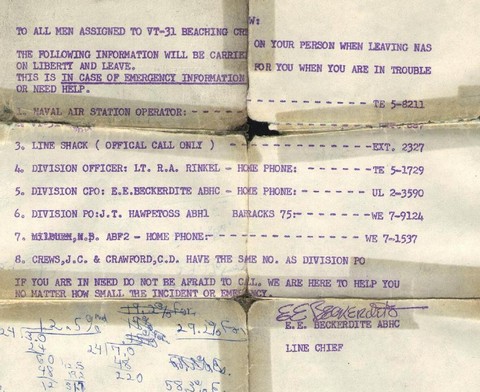 TO ALL MEN ASSIGNED TO VT-31 BEACHING W:
THE FOLLOWING INFORMATION WILL BE CARRIE ON YOUR PERSON WHEN LEAVING NAS
ON LIBERTY AND LEAVE.
THIS IS IN CASE OF EMERGENCY INFORMATION FOR YOU WHEN YOU ARE IN TROUBLE
OR NEED HELP.
1. NAVAL AIR STATION OPERATOR: - - - - - - - - - - - - - - - TE 5-8211
3. LINE SHACK ( OFFICAL CALL ONLY ) - - - - - - - - - - - - - -EXT. 2327
4. DIVISION OFFICER: LT. R.A. RINKEL - HOME PHONE: - - - - - - - TE 5-1729
5. DIVISION CPO: E.E.BECKERDITE ABHC - HOME PHONE: - - - - - - - UL 2-3590
6. DIVISION PO:J.T. HAWPETOSS ABH1 BARACKS 75:- - - - - - - -WE 7-9124
7. ABF2 - HOME PHONE:- - - - - - - - - - - - - - - WE 7-1537
8. CREWS,J.C. & CRAWFORD,C.D. HAVE THE SAME NO. AS DIVISION PO
IF YOU ARE IN NEED DO NOT BE AFRAID TO CAL. WE ARE HERE TO HELP YOU
NO MATTER HOW SMALL THE INCIDENT OR EMERGENCY.
E E Beckerdite
E. E. BECKERDITE ABHC
LINE CHIEF
12.5
29.2% For
24
24
48
220
60
48
12